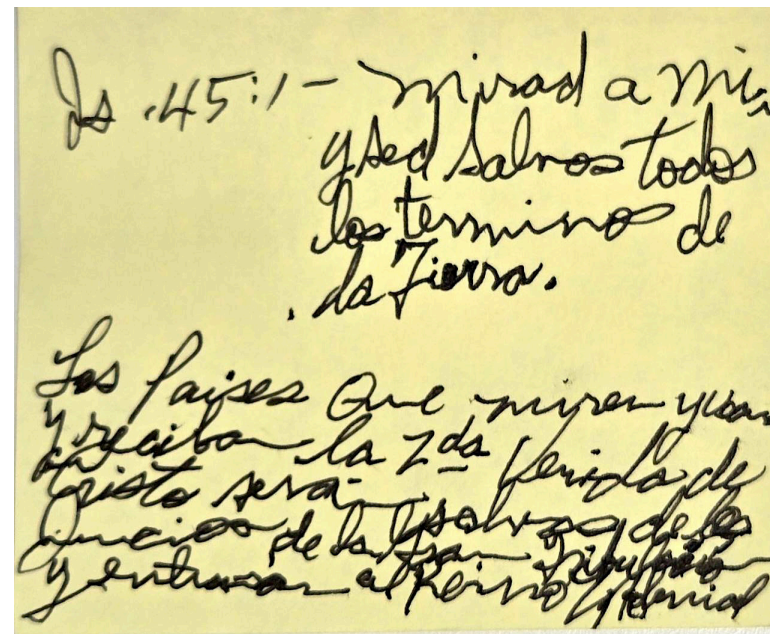 Is. 45:1 - mirad a mi,
y sed salvos todos
los termino de
la Tierra.
Los Paises Que miren y
y reciban la 2da Venida de
Cristo serán
Juicios de la Gran salvos de los Tribulación
y entraran al Reino Milenial